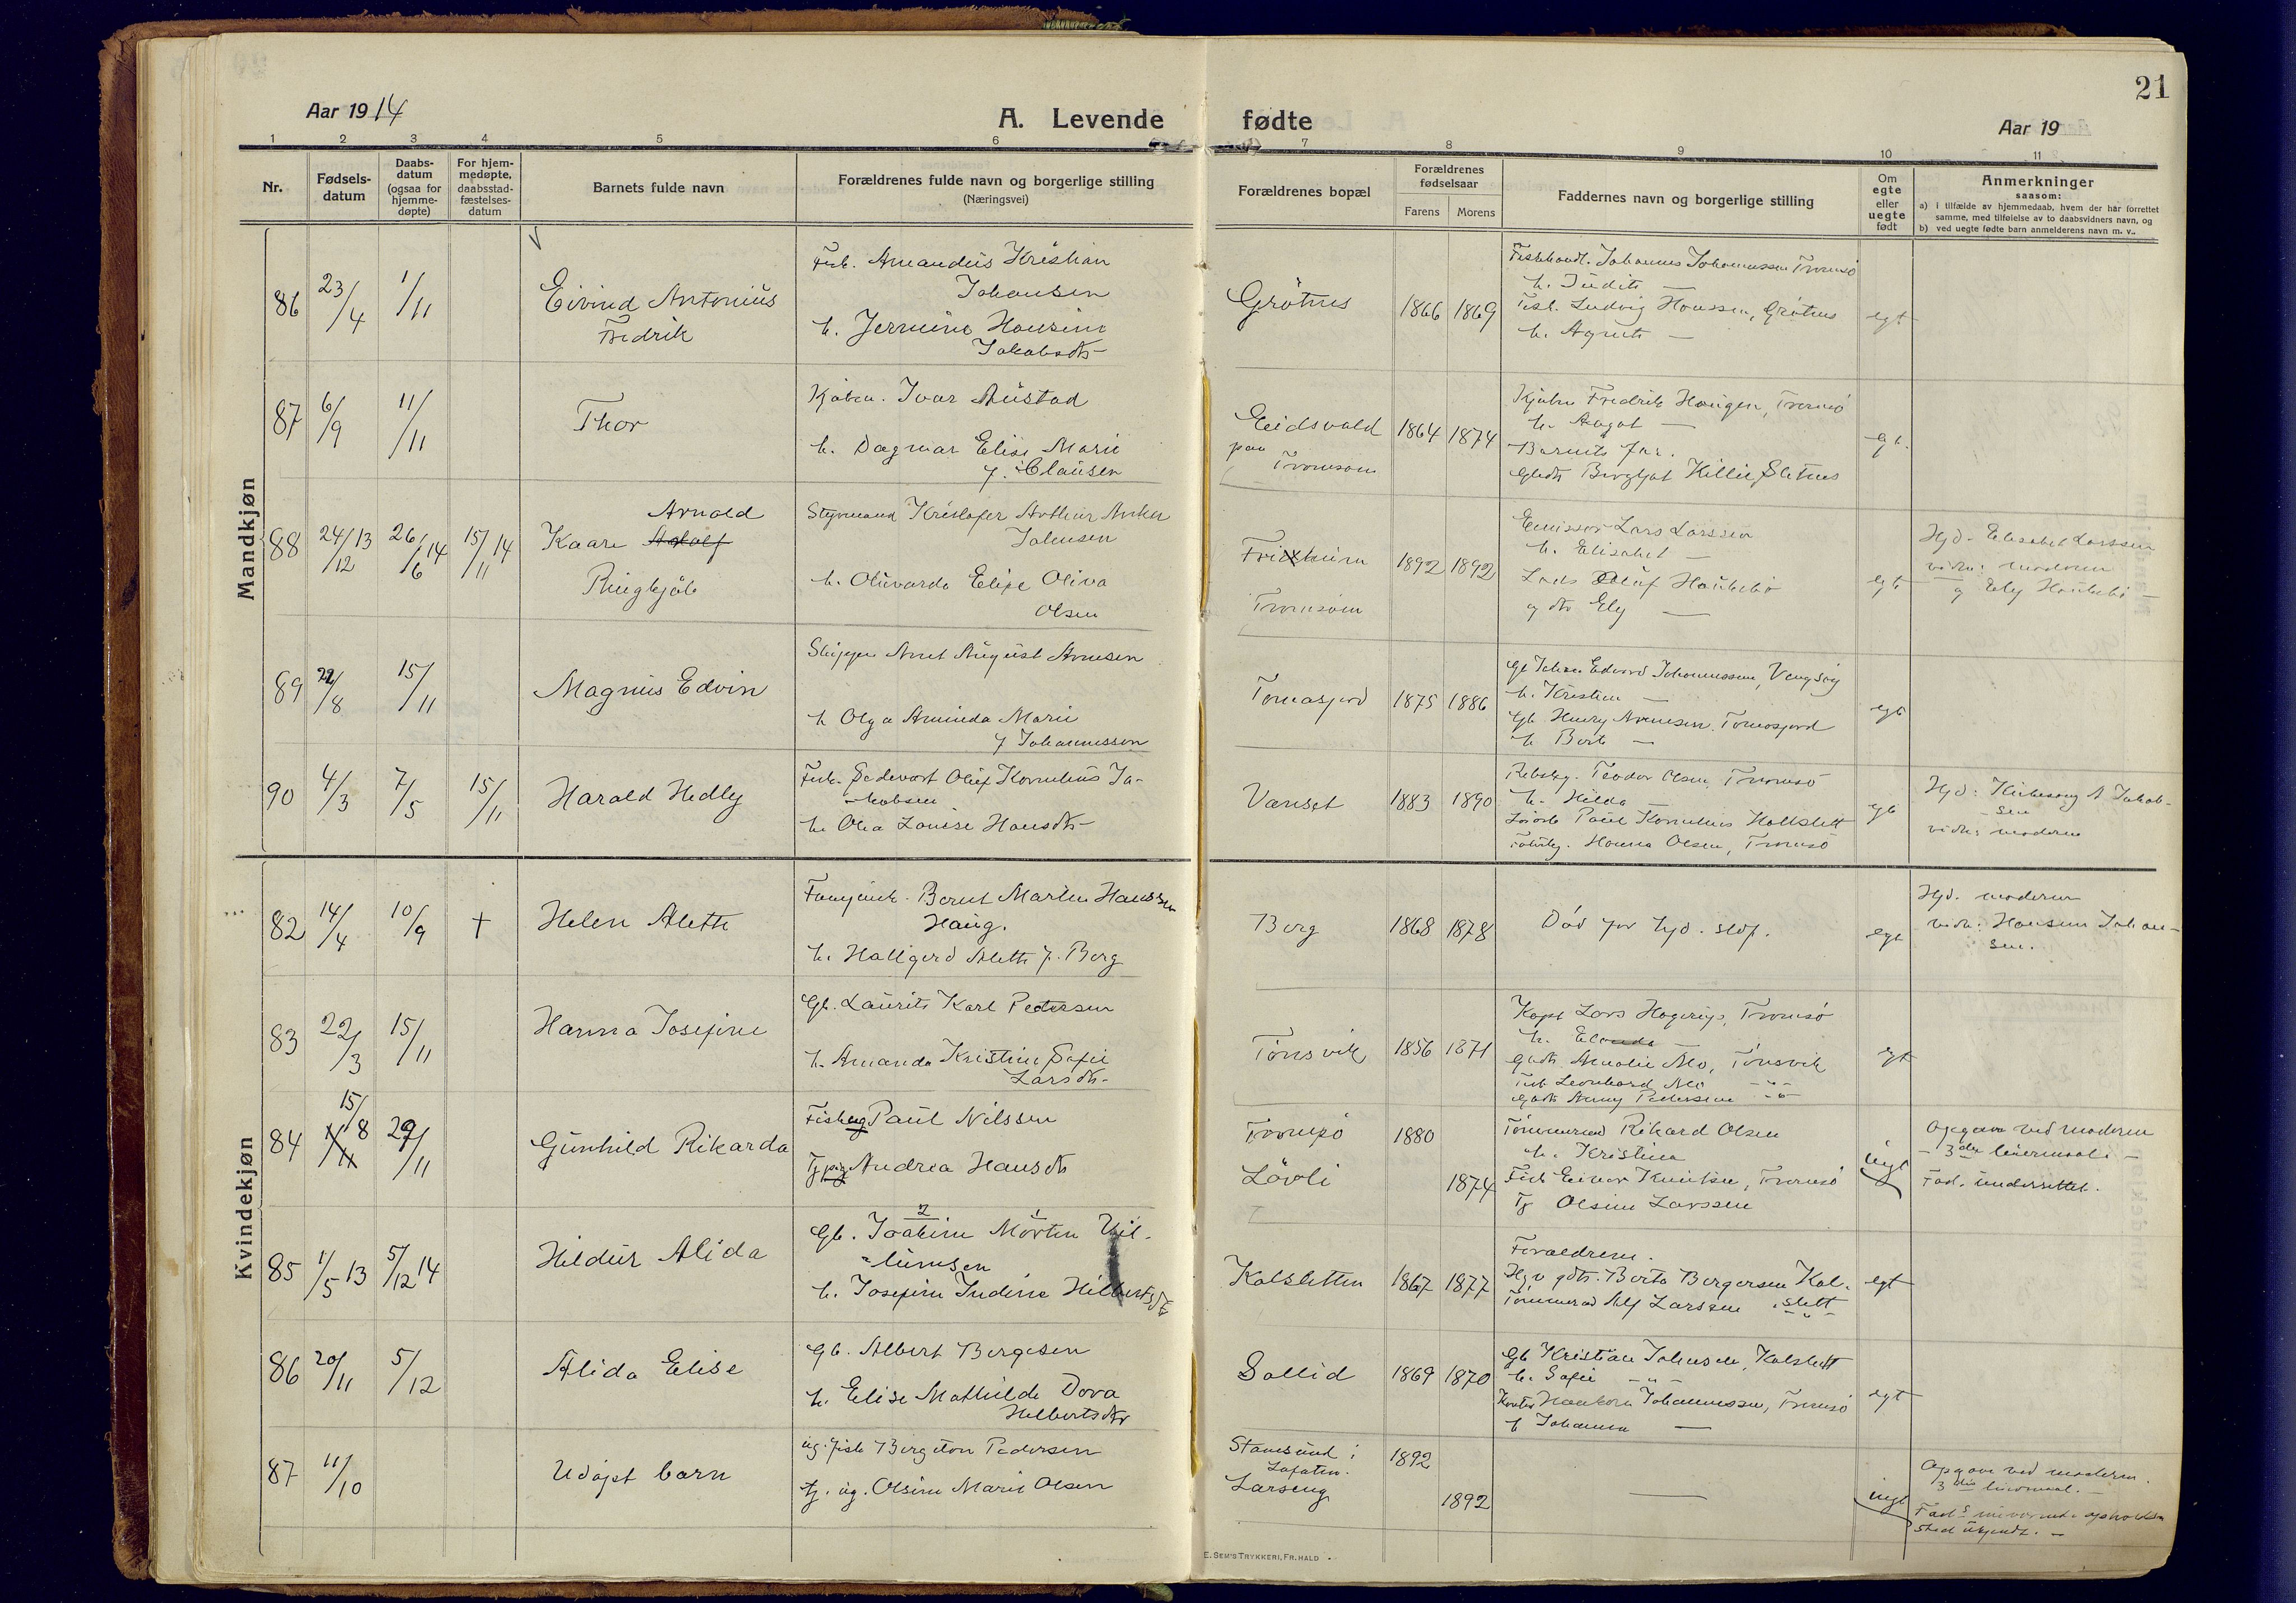 21
Aar 1914
A. Levende fødte
Aar 19
1 2 3 4 5 6 7 8 9 10 11
Nr.
Fødsels-
datum
Daabs-
datum
(ogsaa for
hjemme-
døpte)
For hjem-
medøpte,
daabsstad-
fæstelses-
datum
Barnets fulde navn
Forældrenes fulde navn og borgerlige stilling
(Næringsvei)
Forældrenes bopæl
Forældrenes
fødselsaar
Farens Morens
Faddernes navn og borgerlige stilling
Om
egte
eller
uegte
født
Anmerkninger
saasom:
a) i tilfælde av hjemmedaab, hvem der har forrettet
samme, med tilføielse av to daabsvidners navn, og
b) ved uegte fødte barn anmelderens navn m. v..
Mandkjøn
86 23/4 1/11
Eivind Antonius
Fredrik
Fisk. Amandus Kristian
Johansen
h. Jermine Hansine
Jakobsdtr
Grøtnes
1866 1869
Fiskehandl. Johannes Johannessen Tromsø
h. Judit —
Fisk. Ludvig Hanssen, Grøtnes
h. Agnete —
egt
87 6/9 11/11
Thor
Kjøbm. Ivar Austad
h. Dagmar Elise Marie
f. Clausen
Eidsvold
paa
Tromsøen
1864 1874
Kjøbm Fredrik Haugen, Tromsø
h. Aagot —
Barnets far.
Gbdtr Bergljot Killie, Sletnes
egt.
88 24/12 13 26/6 14 15/11 14
Arnold
Kaare Adolf
Ringkjøb
Styrmand Kristofer Arthur Anker
Johnsen
h. Oluvarda Elise Oliva
Olsen
Fridheim
Tromsøen
1892 1892
Emissær Lars Larssen
h. Elisabet —
Lods Oluf Haukebø
og dtr Ely —
egt
Hjd. Elisabet Larssen
vidn: moderen
og Ely Haukebø —
89 22/8 15/11
Magnus Edvin
Skipper Arnt August Arnesen
h Olga Aminda Marie
f Johannessen
Tomasjord
1875 1886
Gb Johan Edvard Johannessen, Vengsøy
h. Kristine —
Gb Henry Arnesen. Tomasjord
h Berit —
egt
90 4/3 7/5 15/11
Harald Hedly
Fisk. Sedevart Oluf Kornelius Ja-
kobsen
h. Olea Louise Hansdtr
Vanset
1883 1890
Rebslag. Teodor Olsen, Tromsø
h. Hilda —
Paul Kornelius Halkslett
Hanna Olsen, Tromsø
egt
Hjd: Kirkesang A Jakob-
sen
vidn: moderen
Kvindekjøn
82 14/4 10/9 †
Helen Alette
Bernt Martin Hanssen
Haug.
h. Hallgerd Alette f. Berg
Berg
1868 1878
Død før hjd. stdf.
egt
Hjd. moderen
vidn: Hansine Johan-
sen.
83 22/3 15/11
Hanna Josefine
Gb. Laurits Karl Pedersen
h. Amanda Kristine Sofie
Larsdtr
Tønsvik
1856 1871
Kapt Lars Hagerup, Tromsø
h. Elonda —
Gbdtr Amalie Mo, Tønsvik
Fisk Leonhard Mo — " —
Gbdtr Jenny Pedersen — " —
egt
84 15/8 1/11 29/11
Gunhild Rikarda
Fisk ug Paul Nilssen
Tj pig Andrea Hansdtr
Tromsø
Løvli
1880
1874
Tømmermd Rikard Olsen
h. Kristina
Fisk Einar Knutsen, Tromsø
Tj Olsine Larssen
uegt
Opgave ved moderen
— 3die leiermaal —
Fad. underrettet.
85 1/5 13 5/12 14
Hildur Alida
2 1
Gb. Joakim Morten Vil-
lumsen
h. Josefine Indine Hilbertsdtr
Kalsletten
1867 1877
Forældrene.
Hjv gdtr. Berta Bergersen Kal-
slett
Tømmermd Alf Larsen — " —
egt
86 20/11 5/12
Alida Elise
Gb. Albert Bergesen
h. Elise Mathilde Dora
Helbertsdtr
Sollid
1869 1870
Gb Kristian Johnsen, Kalslett
h. Sofie — " —
Haakon Johannessen, Tromsø
h Johanna —
egt
87 11/10
Udøpt barn
ug. fisk Bergiton Pedersen
tj. ug. Olsine Marie Olsen
Stamsund i
Lofoten.
Larseng
1892
1892
—
uegt
Opgave ved moderen.
3die leiermaal. —
Fads nuværende opholds-
sted ukjendt. —
E. SEM'S TRYKKERI, FR. HALD